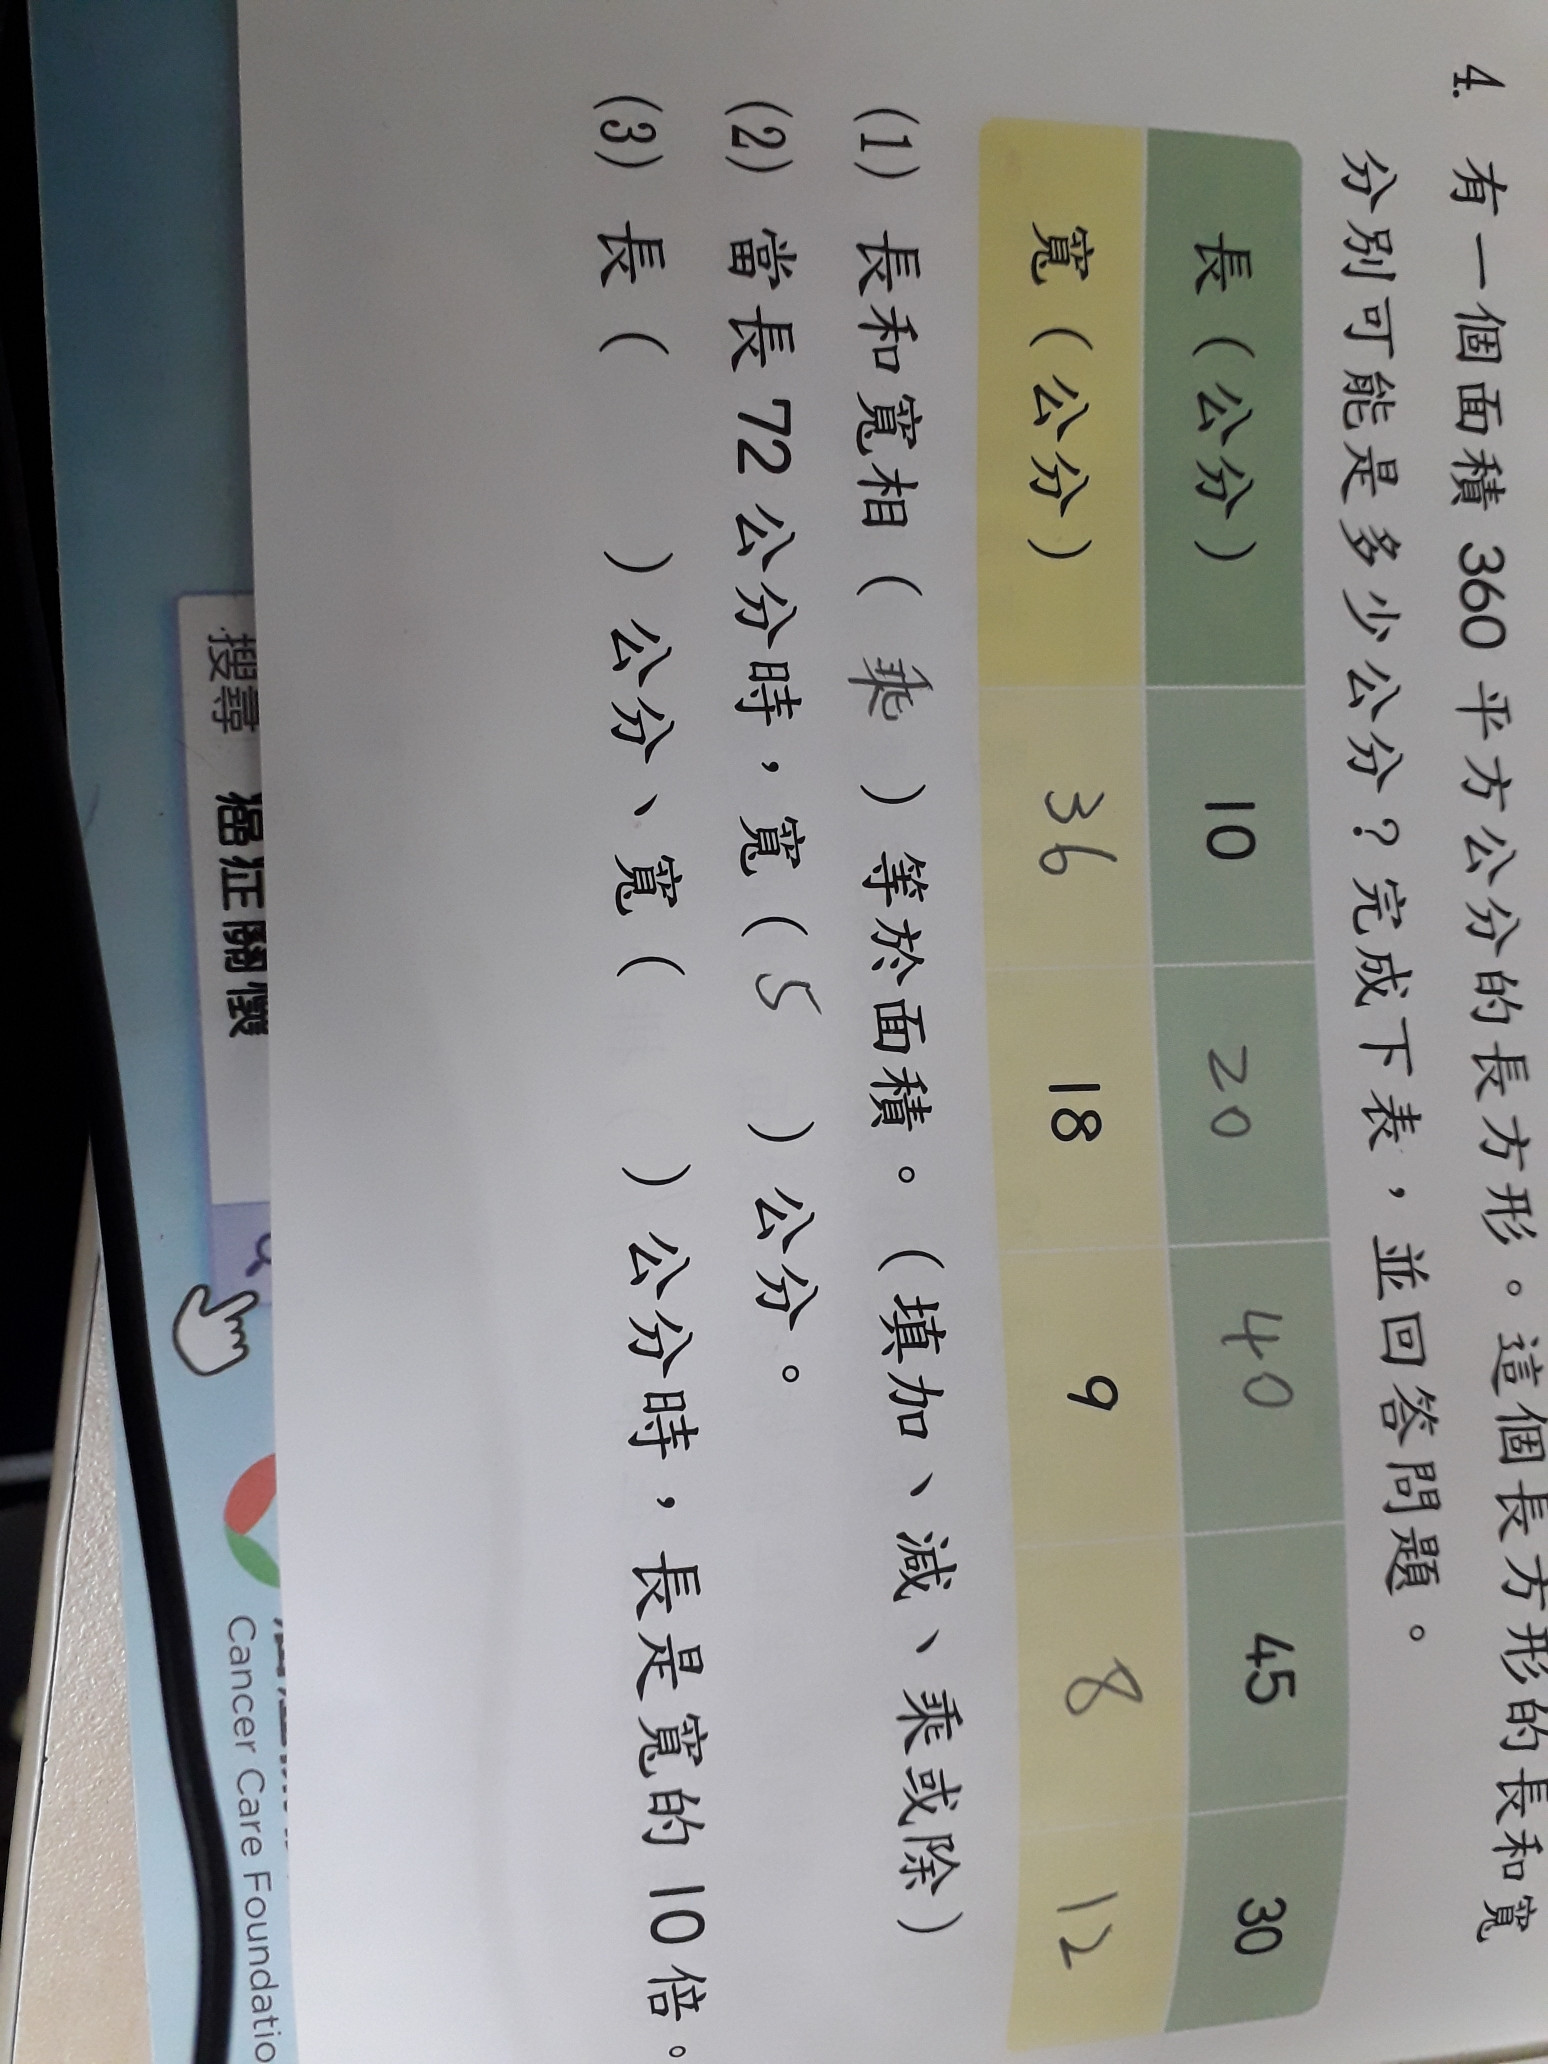 4. 有一個面積 360 平方公分的長方形。這個長方形的長和寬
分別可能是多少公分？完成下表，並回答問題。
長（公分） 10 20 40 45 30
寬（公分） 36 18 9 8 12
(1) 長和寬相（ 乘 ）等於面積。（填加、減、乘或除）
(2) 當長 72 公分時，寬（ 5 ）公分。
(3) 長（ ）公分、寬（ ）公分時，長是寬的 10 倍。
搜尋 癌症關懷
Cancer Care Foundatio